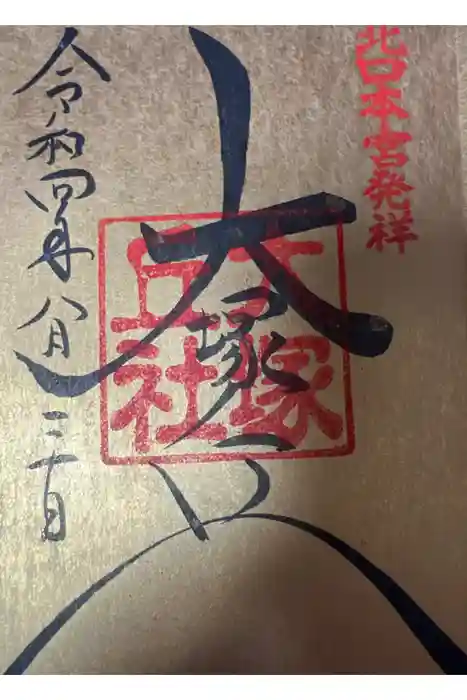 北口本宮発祥
大塚丘
大塚
丘社
令和四年八月三十日